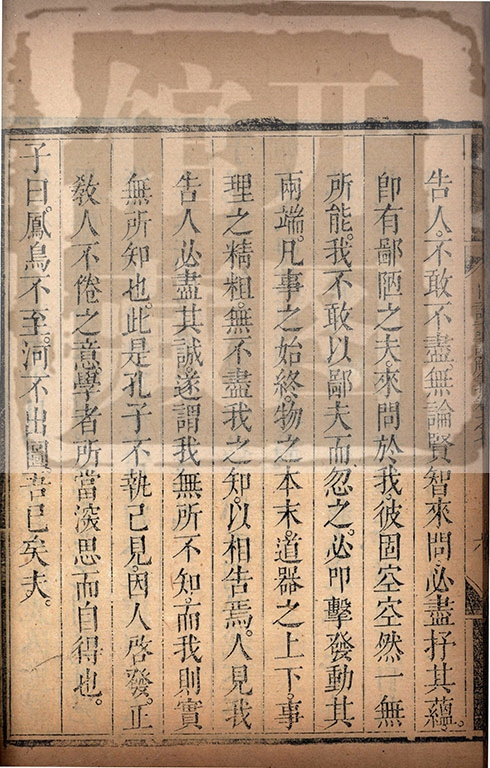 告人。不敢不盡。無論賢智來問。必盡抒其蘊。
卽有鄙陋之夫。來問於我。彼固空空然一無
所能。我不敢以鄙夫而忽之。必叩擊發動其
兩端。凡事之始終。物之本末。道器之上下。事
理之精粗。無不盡我之知。以相告焉。人見我
告人必盡其誠。遂謂我無所不知。而我則實
無所知也。此是孔子不執己見。因人啓發。正
敎人不倦之意。學者所當深思而自得也。
子曰。鳳鳥不至。河不出圖。吾已矣夫。